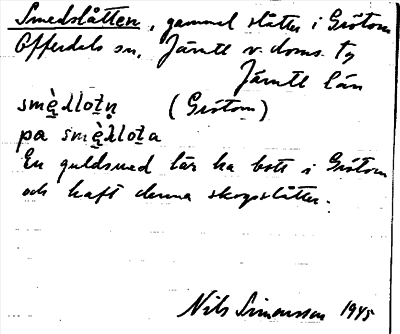 Smedslåtten, gammal slåtter i Grötom
Offerdals sn, Jämtl v. doms. tg
Jämtl län
smè̱llotn̥ (Grötom)
pa smè̱llota
En guldsmed lär ha bott i Grötom
och haft denna skogsslåtter.
Nils Simonsson 1945